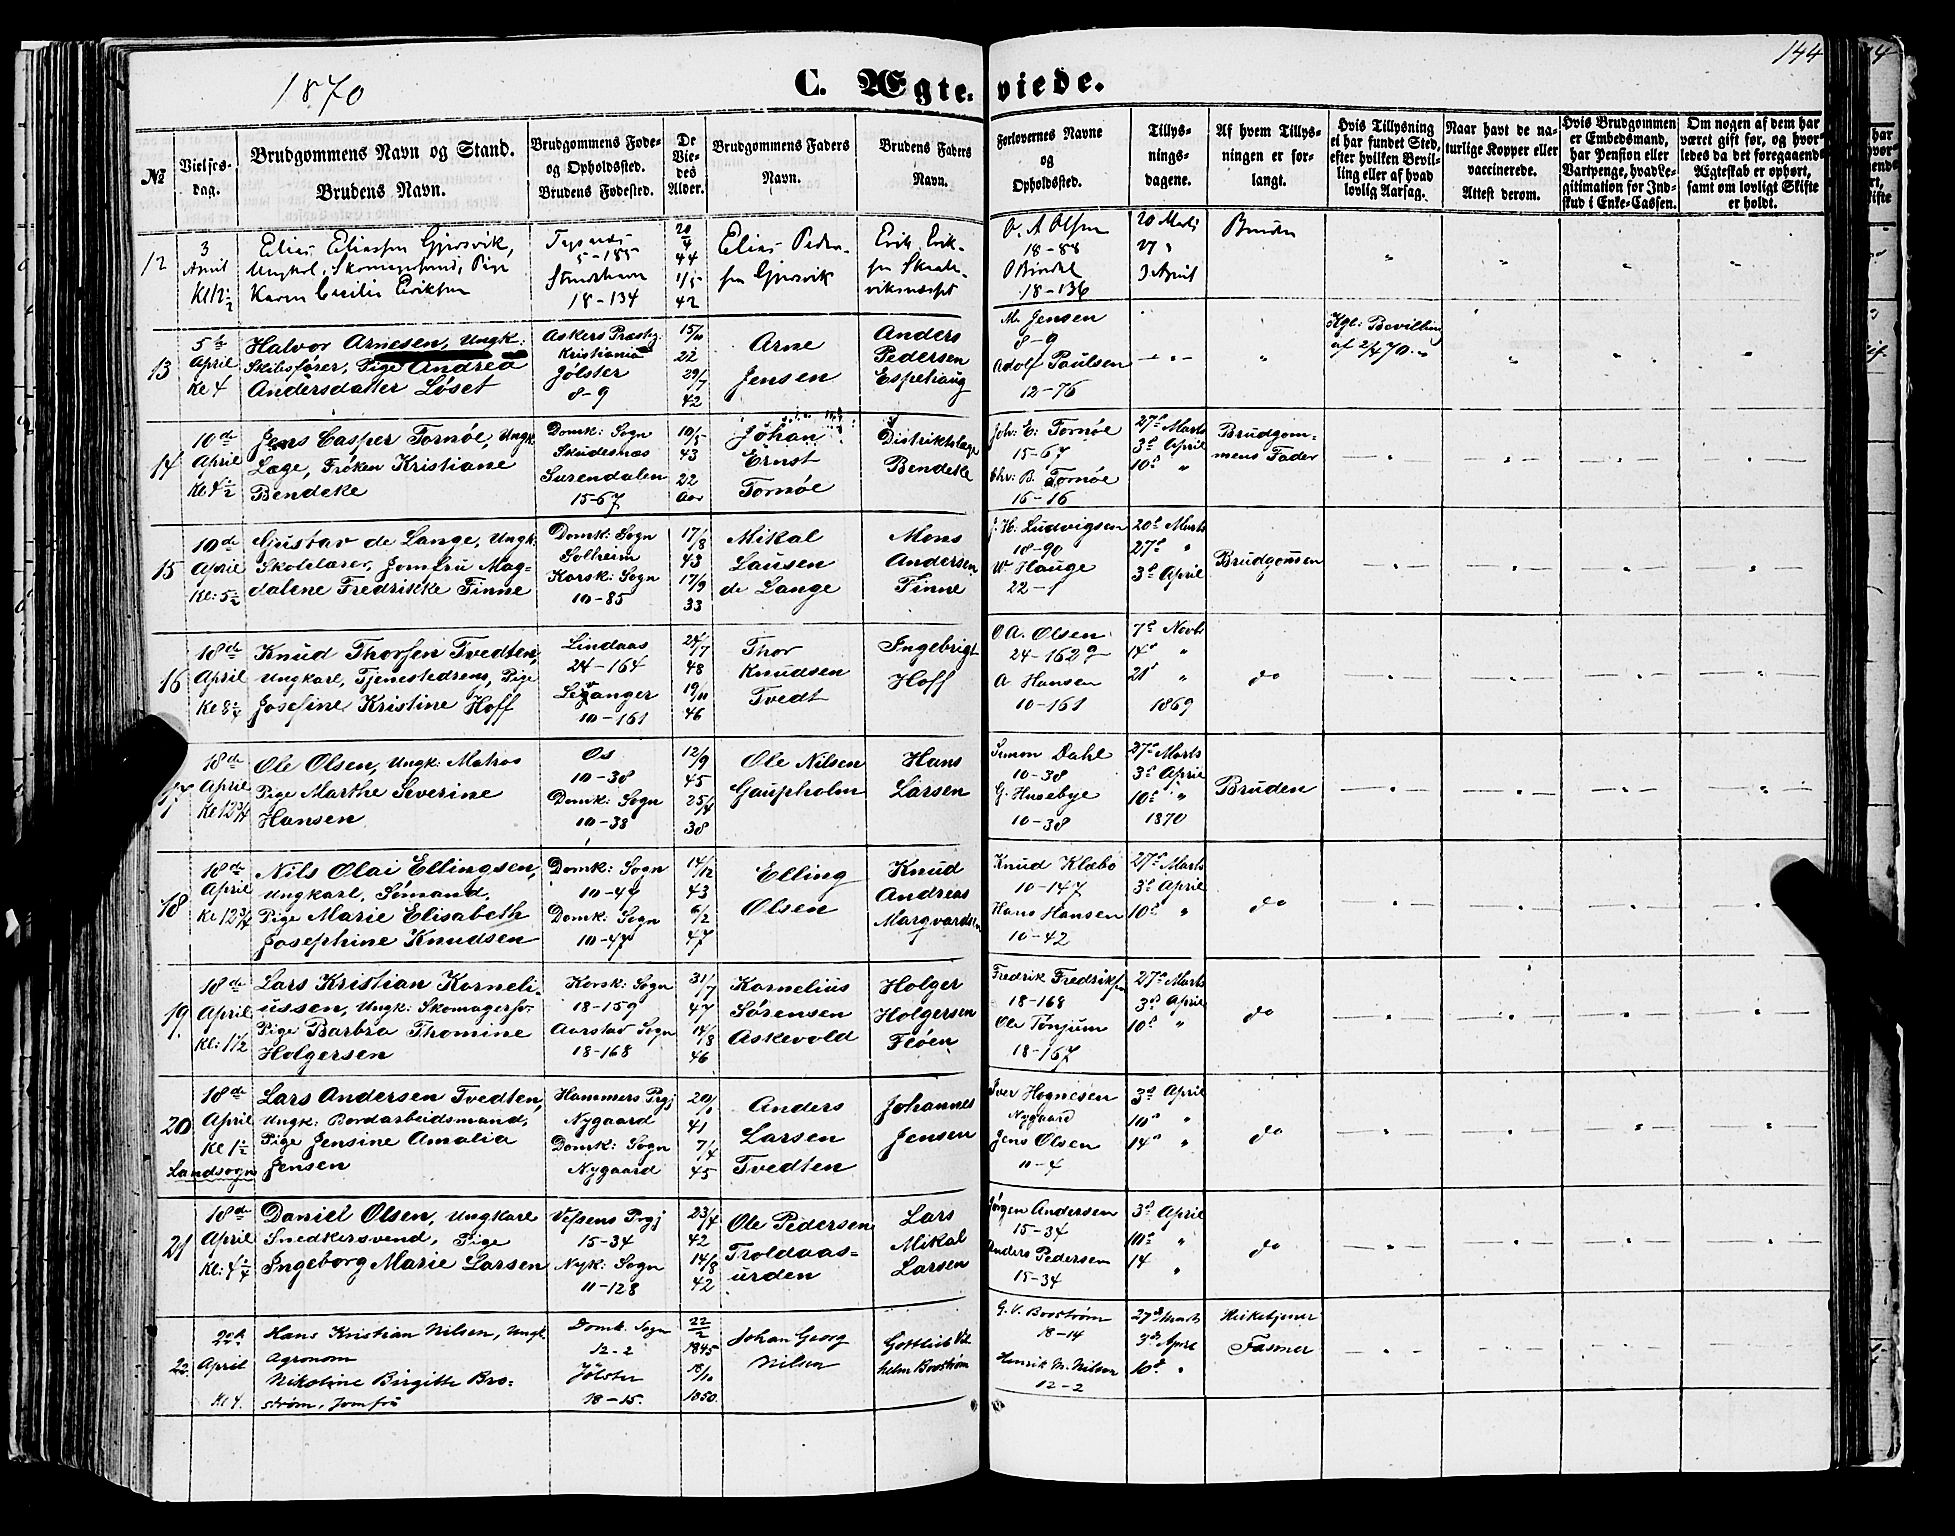 1870
C. Ægteviede.
144
№
Vielses-
dag.
Brudgommens Navn og Stand.
Brudens Navn.
Brudgommens Føde-
og Opholdssted.
Brudens Fødested.
De
Vie-
des
Alder.
Brudgommens Faders
Navn.
Brudens Faders
Navn.
Forlovernes Navne
og
Opholdssted.
Tillys-
nings-
dagene.
Af hvem Tillys-
ningen er for-
langt.
Hvis Tillysning
ei har fundet Sted,
efter hvilken Bevil-
ling eller af hvad
lovlig Aarsag.
Naar havt de na-
turlige Kopper eller
vaccinerede.
Attest derom.
Hvis Brudgommen
er Embedsmand,
har Pension eller
Vartpenge, hvad Le-
gitimation for Ind-
skud i Enke-Cassen.
Om nogen af dem har
været gift før, og hvor-
ledes da det foregaaende
Ægteskab er ophørt,
samt om lovligt Skifte
er holdt.
12
3
April
Elias Eliassen Gjersvik,
Ungkarl, Pige
Karen Cecilie Eriksen
5-185
18-134
20/4
44
1/5
42
Elias Peder-
sen Gjersvik
Erik Erik-
sen
O. A. Olsen
18-88
18-136
20 Marts
27 "
3 April
Bruden
13
5te
April
Kl 4
Halvor Arnesen, Ungk:
Skibsfører, Pige Andrea
Andersdatter Løset
Askers Præstg.
Kristiania
Jølster
8-9
15/11
22
29/7
42
Arne
Jensen
Anders
Pedersen
Espehaug
M. Jensen
8-9
Adolf Paulsen
12-76
Kgl: Bevilling
af 2/4 70.
14
10de
April
Kl 4½
Jens Casper Tornøe, Ungk.
Læge, Frøken Kristiane
Bendeke
Domk: Sogn
Skudesnæs
Surendalen
15-67
10/5
43
22
Aar
Johan
Ernst
Tornøe
Distriktslæge
Bendeke
Joh: E: Tornøe
15-67
Chr: B. Tornøe
16-16
27de Marts
3de April
10de "
Brudgom-
mens Fader
15
10de
April
Kl: 5½
Gustav de Lange, Ungk:
Skolelærer, Jomfru Mag-
dalene Fredrikke Finne
Domk: Sogn
Solheim
Korsk: Sogn
10-85
17/8
43
17/9
33
Mikal
Lausen
de Lange
Mons
Andersen
Finne
J. H. Ludvigsen
18-90
W. Hauge
22-1
20de Marts
27de "
3de April
Brudgommen
16
18de
April
Knud Thorsen Tvedten,
Ungkarl, Tjenestedreng, Pige
Josefine Kristine Hoff
Lindaas
24-164
Leganger
10-161
24/7
48
19/11
46
Thor
Knudsen
Tvedt
Ingebrigt
Hoff
O A. Olsen
24-162
A Hansen
10-161
7de Novbr
14de "
21de "
1869
do
17
18de
April
Kl 12¾
Ole Olsen, Ungk: Matros
Pige Marthe Severine
Hansen
Os
10-38
Domk: Sogn
10-38
12/9
45
25/4
38
Ole Nilsen
Gaupholm
Hans
Larsen
Simon Dahl
10-38
G. Husebye
10-38
27de Marts
3de April
10de "
1870
Bruden
18
18de
April
Kl 12¾
Nils Olai Ellingsen,
Ungkarl, Sømand,
Pige Marie Elisabeth
Josephine Knudsen
Domk: Sogn
10-47
Domk: Sogn
10-47
14/12
43
6/2
47
Elling
Olsen
Knud
Andreas
Margvardsen
Knud Klæbo
10-147
Hans Hansen
10-42
27de Marts
3de April
10de "
do
19
18de
April
Kl: 1½
Lars Kristian Korneli-
ussen, Ungk: Skomagersv.
Pige Barbra Thomine
Holgersen
Korsk: Sogn
18-159
Aarstad Sogn
18-168
31/7
47
14/8
46
Kornelius
Sørensen
Askevold
Holger
Holgersen
Fløen
Fredrik Fredriksen
18-168
Ole Tønjum
18-167
27de Marts
3de April
10de "
do
20
18de
April
Kl 1½
Landsogn
Lars Andersen Tvedten,
Ungk: Bordarbeidsmand,
Pige Jensine Amalia
Jensen
Hammers Prgj
Nygaard
Domk: Sogn
Nygaard
41
7/4
45
Anders
Larsen
Tvedten
Johannes
Jensen
Iver Hognesen
Nygaard
Jens Olsen
11-4
3de April
10de "
14de "
do
21
18de
April
Daniel Olsen, Ungkarl
Snedkersvend, Pige
Ingeborg Marie Larsen
Vefsens Prgj
15-34
Nyk: Sogn
11-128
23/4
42
14/8
42
Ole Pedersen
Troldaas-
urden
Lars
Mikal
Larsen
Jørgen Andersen
15-34
Anders Pedersen
15-34
3de April
10de "
14 "
do
22
April
Kl 4.
Hans Kristian Nilsen, Ungk.
Agronom
Nikoline Birgitte Bro-
strøm, Jomfru
Domk. Sogn
12-2
Jølster
18-15.
22/2
1845
18/10
1850.
Johan Georg
Nilsen
Gottlieb Vil-
helm Boostrøm
G. V. Boostrøm
18-14
Henrik M. Nilsen
12-2
27de Marts
3de April
10de "
Kirketjener
Fasmer